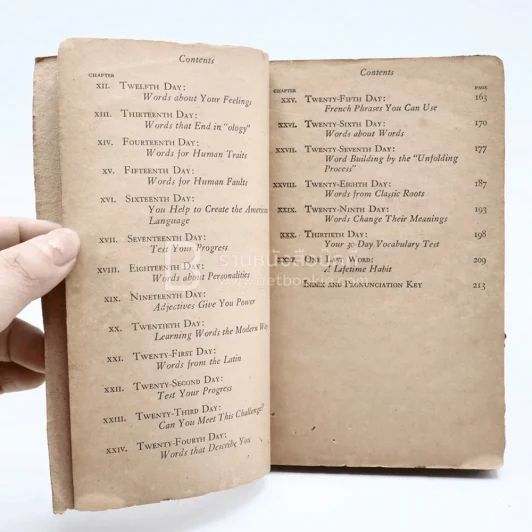 Contents
CHAPTER
XII. TWELFTH DAY:
Words about Your Feelings
XIII. THIRTEENTH DAY:
Words that End in "ology"
XIV. FOURTEENTH DAY:
Words for Human Traits
XV. FIFTEENTH DAY:
Words for Human Faults
XVI. SIXTEENTH DAY:
You Help to Create the American
Language
XVII. SEVENTEENTH DAY:
Test Your Progress
XVIII. EIGHTEENTH DAY:
Words about Personalities
XIX. NINETEENTH DAY:
Adjectives Give You Power
XX. TWENTIETH DAY:
Learning Words the Modern Way
XXI. TWENTY-FIRST DAY:
Words from the Latin
XXII. TWENTY-SECOND DAY:
Test Your Progress
XXIII. TWENTY-THIRD DAY:
Can You Meet This Challenge?
XXIV. TWENTY-FOURTH DAY:
Words that Describe You
Contents
CHAPTER PAGE
XXV. TWENTY-FIFTH DAY: 163
French Phrases You Can Use
XXVI. TWENTY-SIXTH DAY: 170
Words about Words
XXVII. TWENTY-SEVENTH DAY: 177
Word Building by the "Unfolding
Process"
XXVIII. TWENTY-EIGHTH DAY: 187
Words from Classic Roots
XXIX. TWENTY-NINTH DAY: 193
Words Change Their Meanings
XXX. THIRTIETH DAY: 198
Your 30-Day Vocabulary Test
XXXI. ONE LAST WORD: 209
A Lifetime Habit
INDEX AND PRONUNCIATION KEY 213